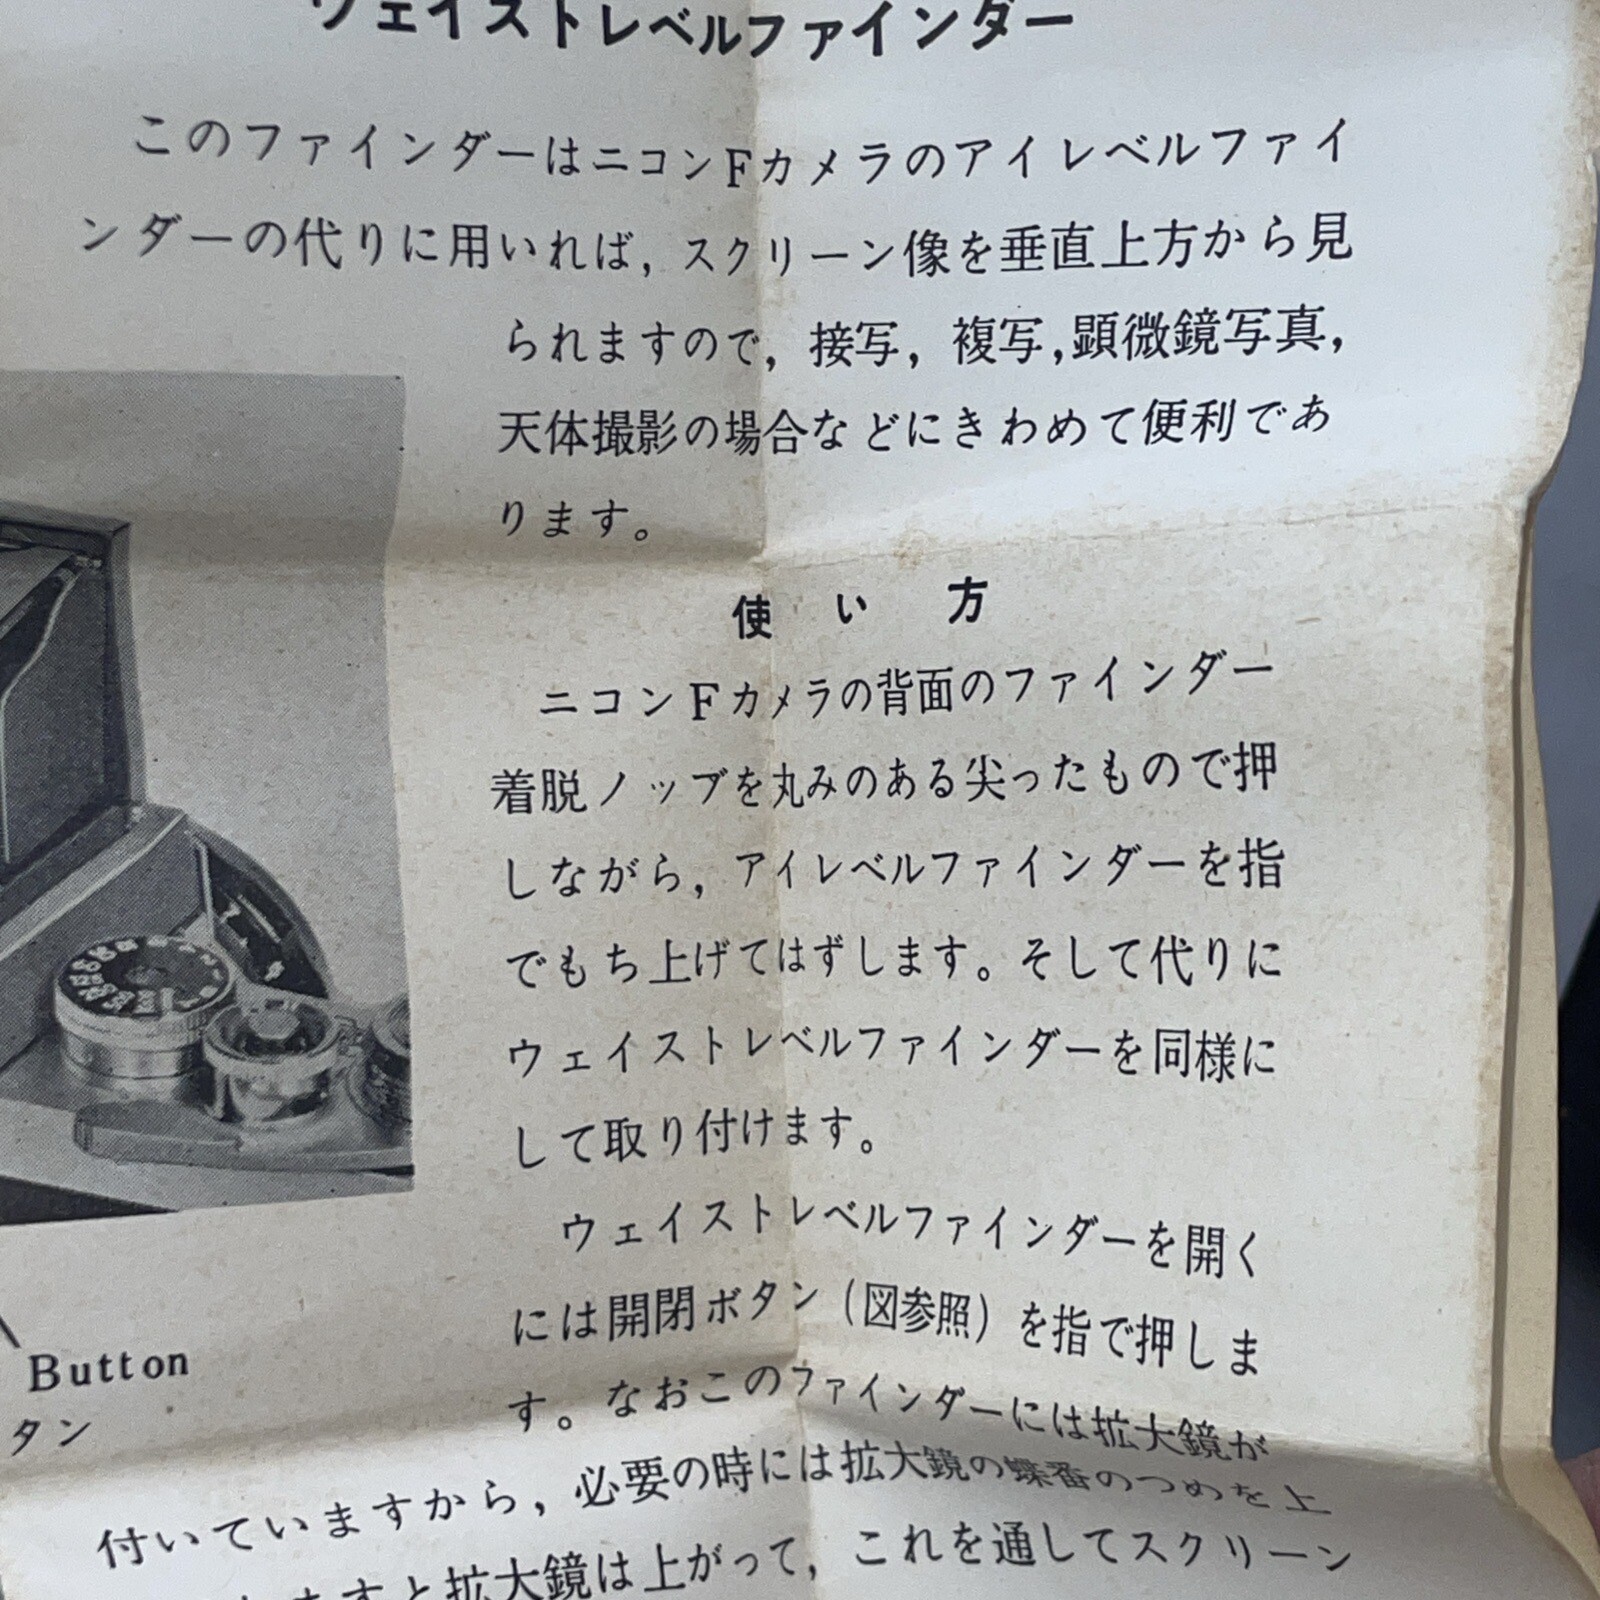 ウェイストレベルファインダー
このファインダーはニコンFカメラのアイレベルファイ
ンダーの代りに用いれば，スクリーン像を垂直上方から見
られますので，接写，複写，顕微鏡写真，
天体撮影の場合などにきわめて便利であ
ります。
使い方
ニコンFカメラの背面のファインダー
着脱ノッブを丸みのある尖ったもので押
しながら，アイレベルファインダーを指
でもち上げてはずします。そして代りに
ウェイストレベルファインダーを同様に
して取り付けます。
ウェイストレベルファインダーを開く
には開閉ボタン（図参照）を指で押しま
す。なおこのファインダーには拡大鏡が
付いていますから，必要の時には拡大鏡の蝶番のつめを上
ますと拡大鏡は上がって，これを通してスクリーン
Button
タン